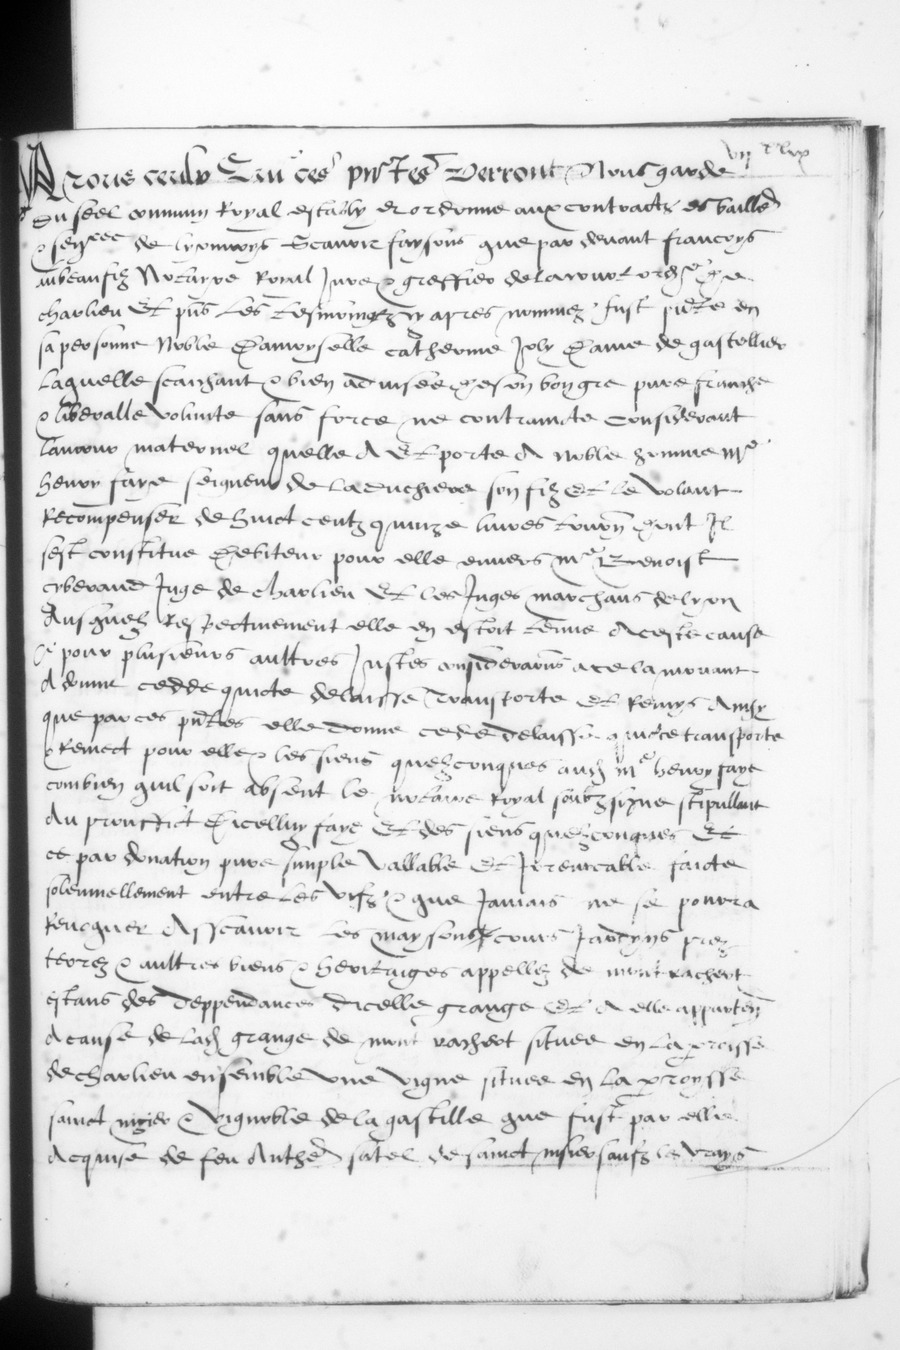 A tous ceulx qui ces pntes verront Nous garde
du seel commun Royal estably et ordonne aux contractz es bailled
& senee de lyonnoys Scavoir faysons que par devant francoys
aubeaufilz Notayre Royal Jure & greffier de la court
charlieu Et pns Les tesmoingz cy apres nommez fust pnte en
sa personne Noble Damoyselle catherine Joly Dame de gastellier
Laquelle scaichant & bien advisee de son bon gre pure franche
& liberalle volunte sans force ne contraincte Considerant
lamour maternel quelle A Et porte A noble homme Me
henry faye seigneur de La duchiere son filz Et le volant
Recompenser de huict centz quinze livres tourn Dont Il
sest constitue Debiteur pour elle envers Me Benoist
Juge de charlieu Et les Juges marchans de lyon
Ausquelz Respectivement elle en estoit tenue A ceste cause
& pour plusieurs aultres Justes considerations a ce la mouvant
A donne cedde quicte delaisse transporte Et Remys Ainsy
que par ces pntes elle donne cede delaisse quicte transporte
& Remect pour elle & les siens quelzconques aud Me henry faye
combien quil soit absent le notaire Royal soubzsigne stipullant
Au prouffict Dicelluy faye Et des siens quelzconques Et
ce par donation pure simple vallable Et Irrevocable faicte
solennellement entre Les vifz & que Jamais ne se pourra
Revoquer Asscavoir Les maysons cours Jardyns prez
terres & aultres biens & heritaiges appellez de mont rachert
estans des deppendances dicelle grange Et A elle apparten
A cause de Lad grange de mont rachert situee en La paroisse
de charlieu ensemble une vigne situee en La paroysse
sainct nizier & vignoble de la gastille que fust par elle
Acquise de feu Anthe satel de sainct nisier saufz le